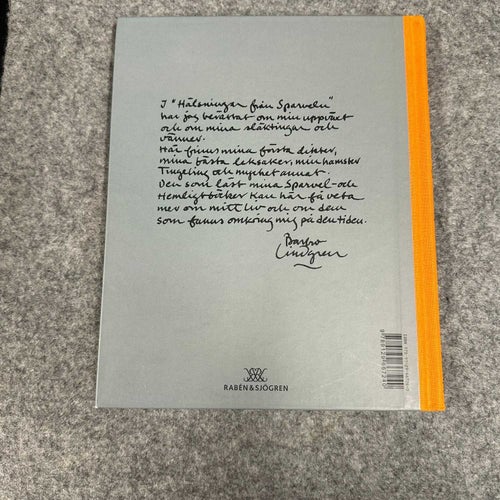 I "Hälsningar från Sparveln"
har jag berättat om min uppväxt
och om mina släktingar och
vänner.
Här finns mina första dikter,
mina bästa leksaker, min hamster
Tingeling och mycket annat.
Den som läst mina Sparvel- och
Hemligtböcker kan här få veta
mer om mitt liv och om dem
som fanns omkring mig på den tiden.
Barbro
Lindgren
RABÉN & SJÖGREN